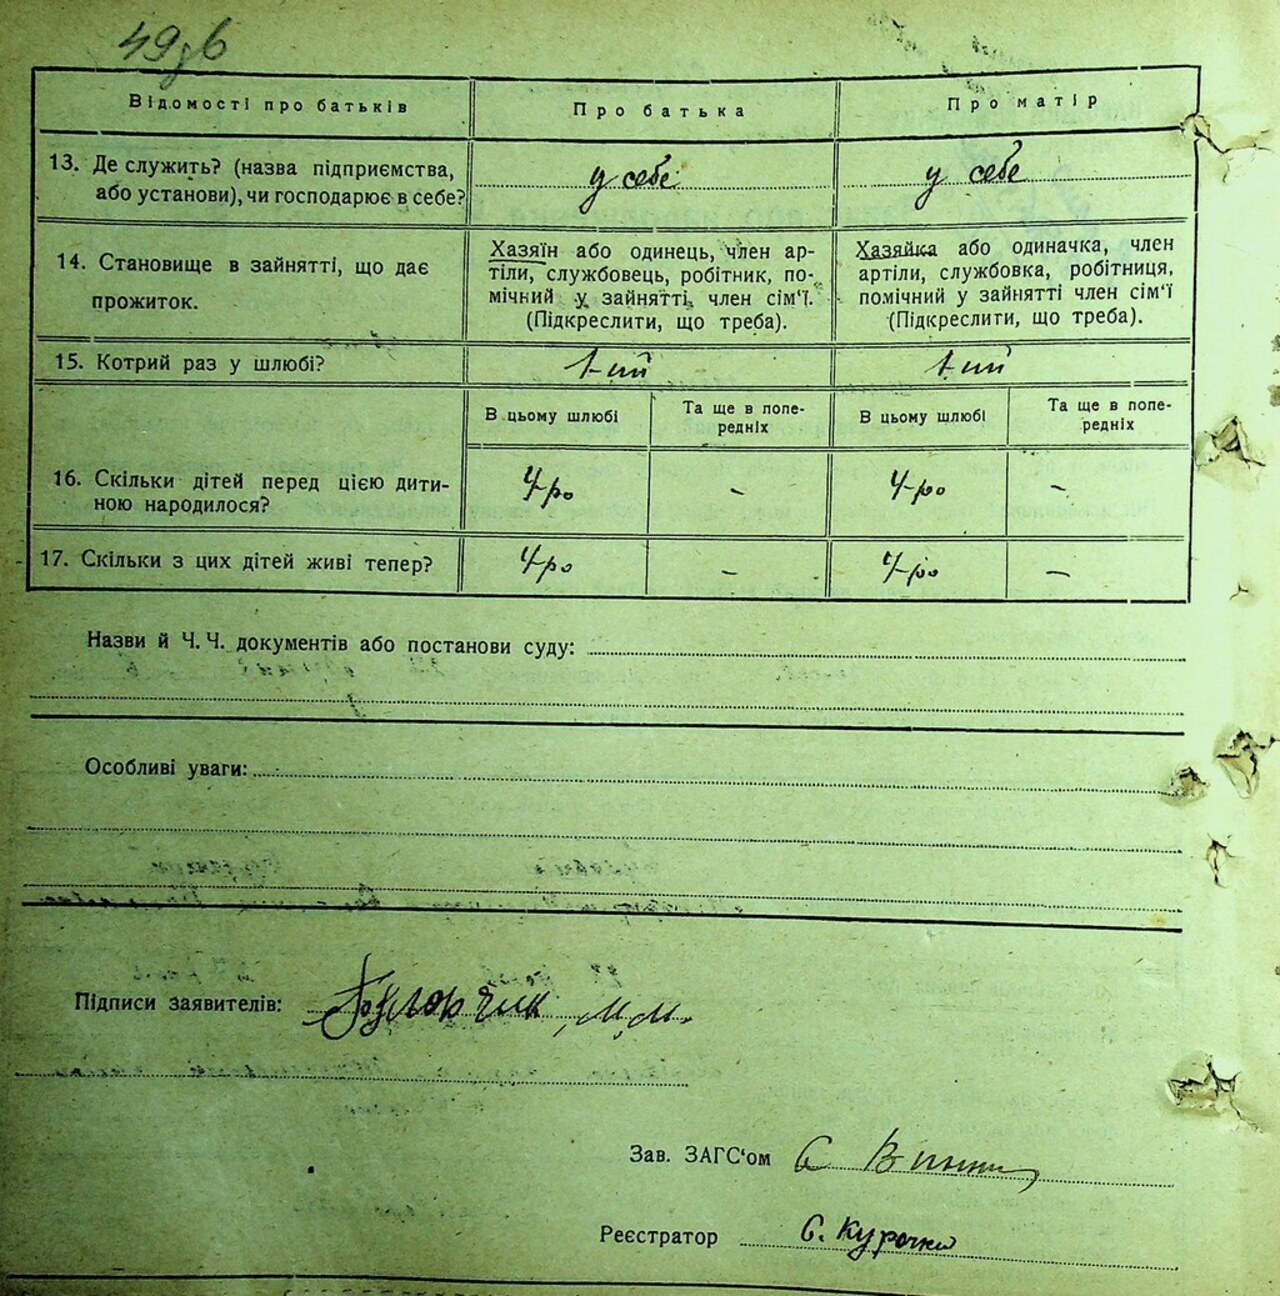 49зв
Відомості про батьків
Про батька
Про матір
13. Де служить? (назва підприємства,
або установи), чи господарює в себе?
у себе
у себе
14. Становище в зайнятті, що дає
прожиток.
Хазяїн або одинець, член ар-
тіли, службовець, робітник, по-
мічний у зайнятті член сім'ї.
(Підкреслити, що треба).
Хазяйка або одиначка, член
артіли, службовка, робітниця,
помічний у зайнятті член сім'ї
(Підкреслити, що треба).
15. Котрий раз у шлюбі?
1-ий
1-ий
В цьому шлюбі
Та ще в попе-
редніх
В цьому шлюбі
Та ще в попе-
редніх
16. Скільки дітей перед цією дити-
ною народилося?
4-ро
-
4-ро
-
17. Скільки з цих дітей живі тепер?
4-ро
-
4-ро
-
Назви й Ч. Ч. документів або постанови суду:
Особливі уваги:
Підписи заявителів:
М.М.
Зав. ЗАГС'ом
Реєстратор